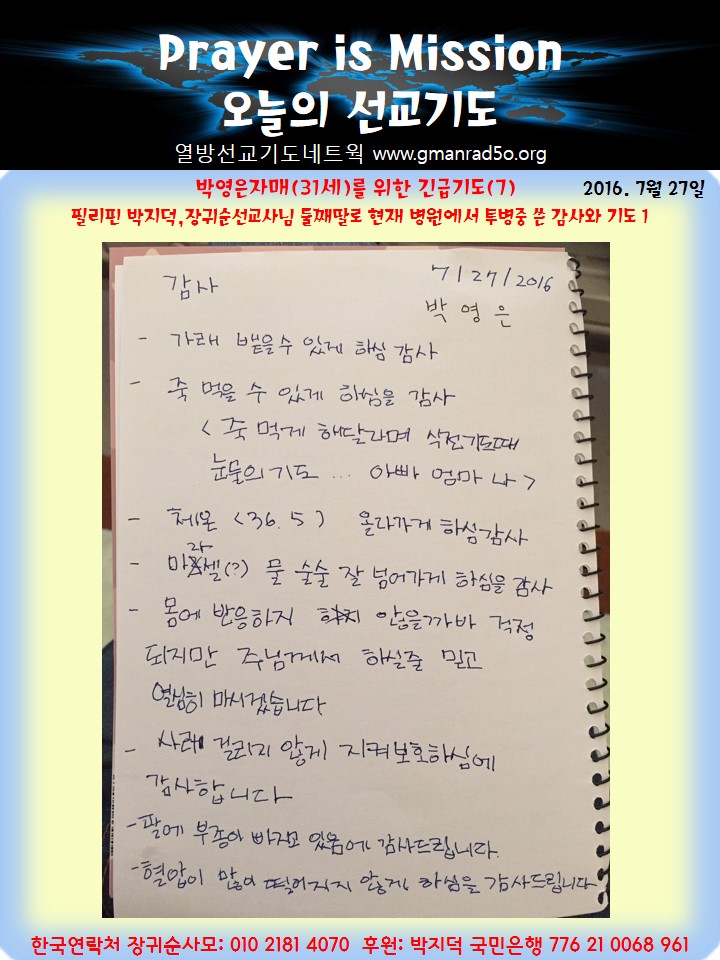 Prayer is Mission
오늘의 선교기도
열방선교기도네트웍 www.gmanrad5o.org
박영은자매(31세)를 위한 긴급기도(7) 2016. 7월 27일
필리핀 박지덕,장귀순선교사님 둘째딸로 현재 병원에서 투병중 쓴 감사와 기도 1
감사 7/27/2016
박영은
- 가래 뱉을수 있게 하심 감사
- 죽 먹을 수 있게 하심을 감사
< 죽 먹게 해달라며 식전기도때
눈물의기도 ... 아빠 엄마 나 >
- 체온 <36.5) 올라가게 하심감사
- 마라셀(?) 물 술술 잘 넘어가게 하심을 감사
- 몸에 반응하지 않을까바 걱정
되지만 주님께서 하실줄 믿고
열심히 마시겠습니다
- 사래 걸리지 않게 지켜보호하심에
감사합니다
- 팔에 부종이 빠지고 있음에 감사드립니다.
- 혈압이 많이 떨어지지 않게 하심을 감사드립니다
한국연락처 장귀순사모: 010 2181 4070 후원: 박지덕 국민은행 776 21 0068 961